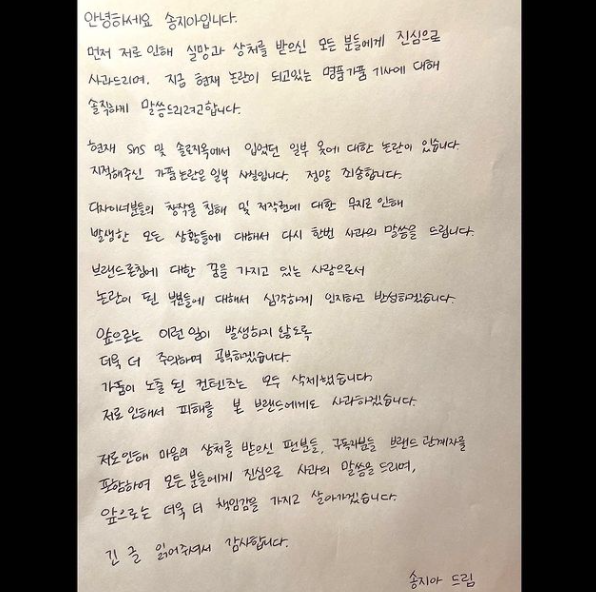 안녕하세요 송지아입니다.
먼저 저로 인해 실망과 상처를 받으신 모든 분들에게 진심으로
사과드리며. 지금 현재 논란이 되고있는 명품가품 기사에 대해
솔직하게 말씀드리려고합니다.
현재 sns 및 솔로지옥에서 입었던 일부 옷에 대한 논란이 있습니다
지적해주신 가품논란은 일부 사실입니다. 정말 죄송합니다.
디자이너분들의 창작물 침해 및 저작권에 대한 무지로 인해
발생한 모든 상황들에 대해서 다시 한번 사과의 말씀을 드립니다.
브랜드론칭에 대한 꿈을 가지고 있는 사람으로서
논란이 된 부분들에 대해서 심각하게 인지하고 반성하겠습니다.
앞으로는 이런 일이 발생하지 않도록
더욱 더 주의하며 공부하겠습니다.
가품이 노출 된 컨텐츠는 모두 삭제했습니다.
저로 인해서 피해를 본 브랜드에게도 사과하겠습니다.
저로인해 마음의 상처를 받으신 팬분들, 구독자분들 브랜드 관계자를
포함하여 모든 분들에게 진심으로 사과의 말씀을 드리며,
앞으로는 더욱 더 책임감을 가지고 살아가겠습니다.
긴 글 읽어주셔서 감사합니다.
송지아 드림